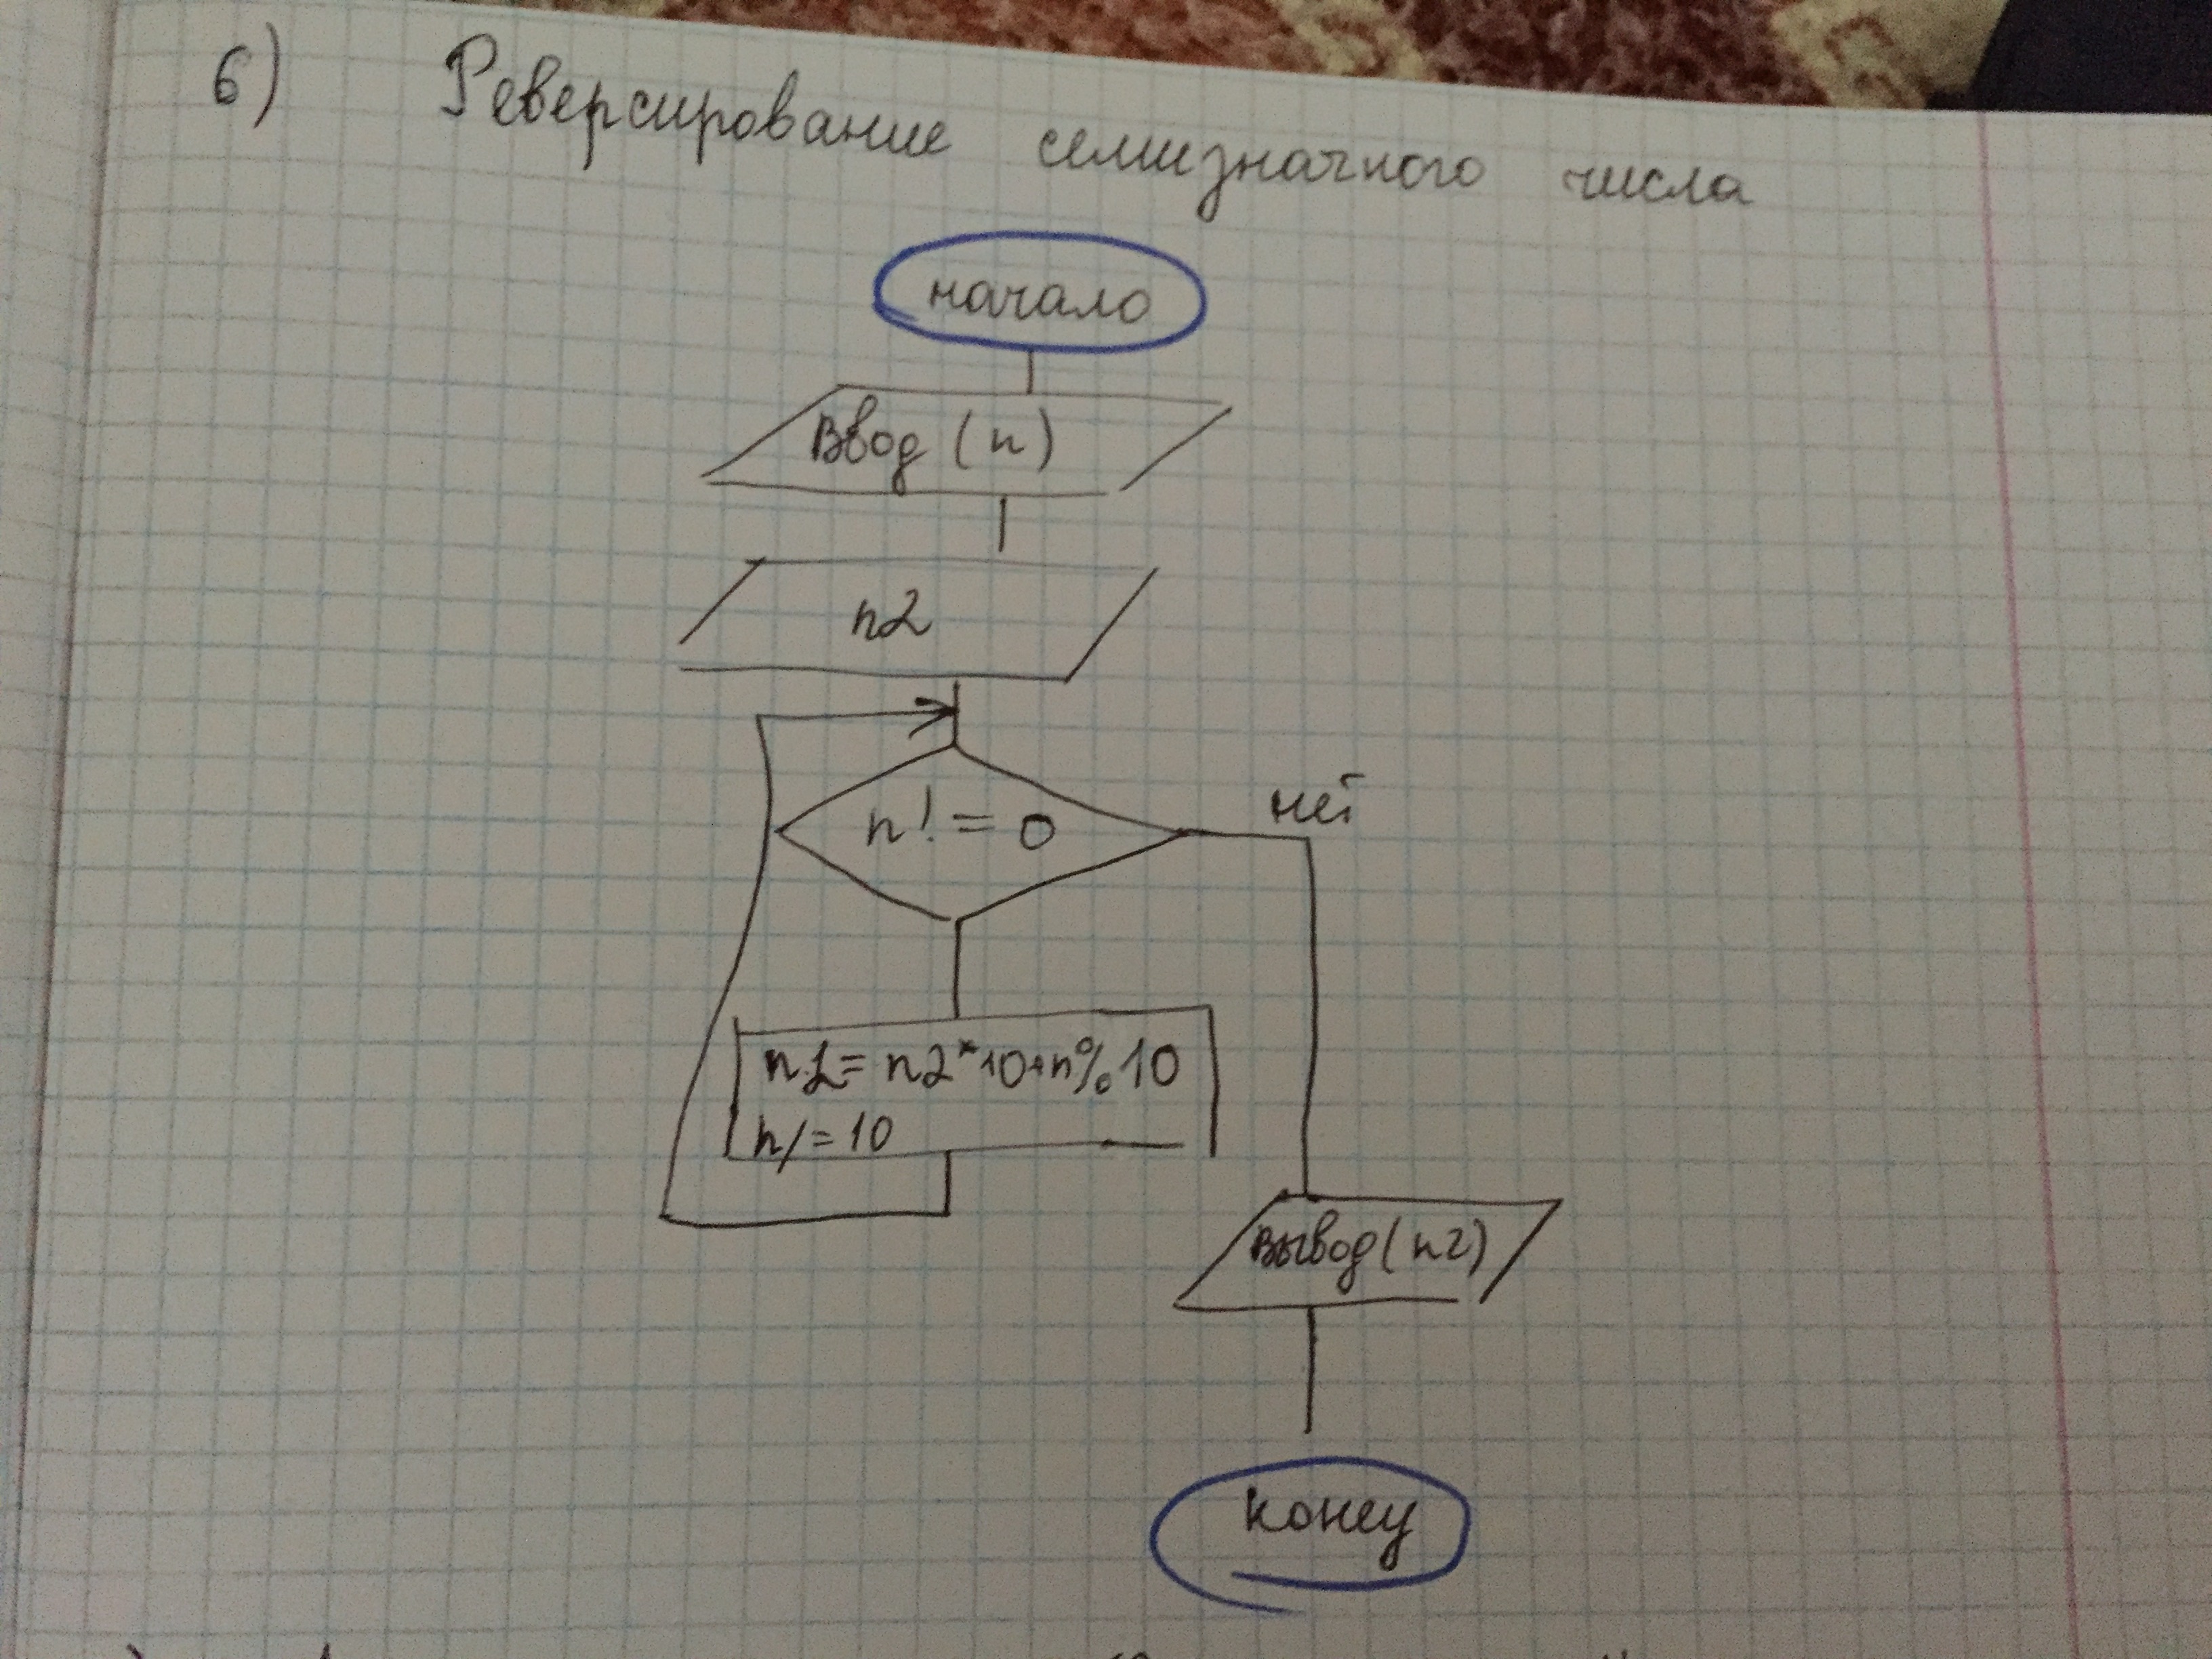 6) Реверсирование семизначного числа
начало
Ввод (n)
n2
n! = 0
ней
n2= n2*10+n%10
n/=10
вывод(n2)
конец